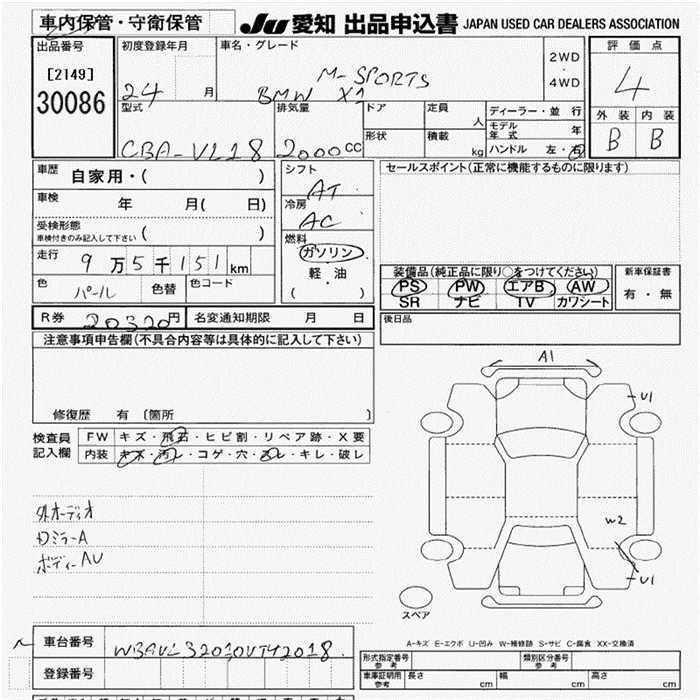 車内保管・守衛保管
JU 愛知 出品申込書 JAPAN USED CAR DEALERS ASSOCIATION
出品番号
[2149]
30086
初度登録年月
24 月
車名・グレード
M-SPORTS
BMW X1
2WD
・
4WD
評価点
4
外装 内装
B B
型式
CBA-VL18
排気量
2000 CC
ドア
定員
人
形状
積載
kg
ディーラー・並行
モデル年式 年
ハンドル 左・右
車歴
自家用・( )
車検
年 月( 日)
受検形態
車検付きのみ記入して下さい ( )
走行
9万5千151km
色
パール
色替
色コード
シフト
AT
冷房
AC
燃料
ガソリン
軽・油
( )
セールスポイント(正常に機能するものに限ります)
装備品(純正品に限り○をつけてください)
PS PW エアB AW
SR ナビ TV カワシート
新車保証書
有・無
R券 20320円
名変通知期限 月 日
後日品
注意事項申告欄(不具合内容等は具体的に記入して下さい)
修復歴 有 〔箇所 〕
検査員
記入欄
FW キズ・飛石・ヒビ割・リペア跡・X要
内装 キズ・汚レ・コゲ・穴・スレ・キレ・破レ
外オーディオ
DミラーA
ボディーAU
A1
U1
W2
U1
スペア
A-キズ E-エクボ U-凹み W-補修跡 S-サビ C-腐食 XX-交換済
車台番号
登録番号
形式指定番号
参考
類別区分番号
参考
車庫証明用
参考
長さ cm
幅 cm
高さ cm